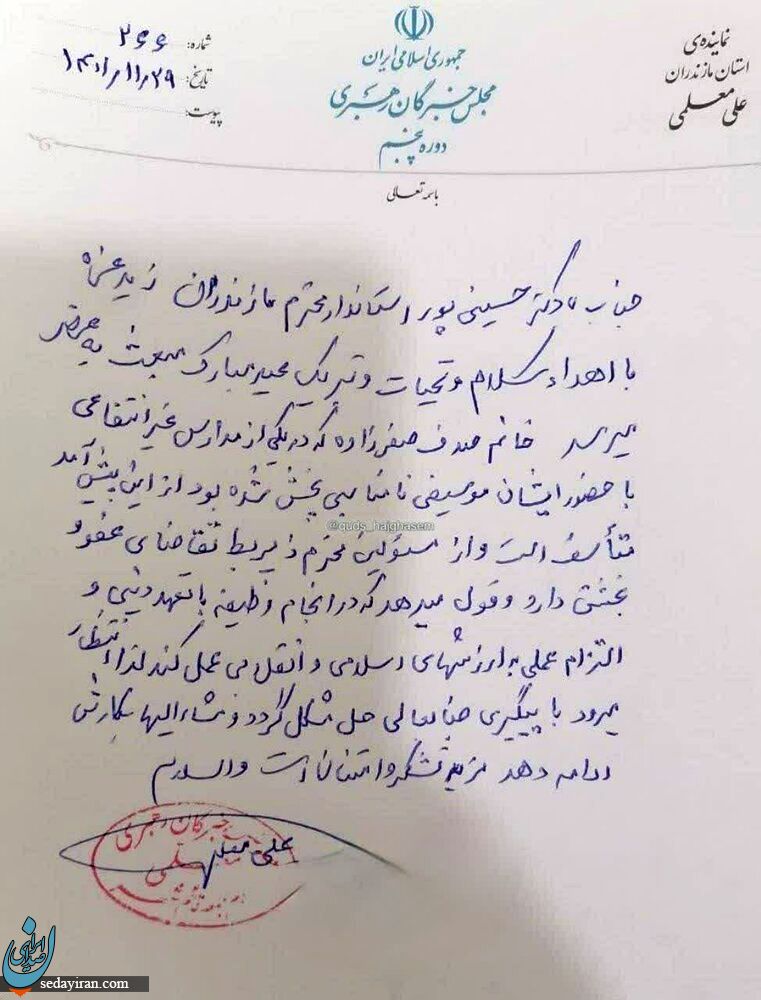 جمهوری اسلامی ایران
مجلس خبرگان رهبری
دوره پنجم
نماینده‌ی
استان مازندران
علی معلمی
شماره: ۲۶۶
تاریخ: ۱۴۰۱/۱۱/۲۹
پیوست:
باسمه تعالی
جناب آقای دکتر حسینی پور استاندار محترم مازندران زید عزه
با اهداء سلام و تحیات و تبریک عید مبارک مبعث به عرض
میرسد خانم صدف صفرزاده که در یکی از مدارس غیرانتفاعی
با حضور ایشان موسیقی نامناسبی پخش شده بود از این پیش آمد
@quds_hajghasem
متأسف است و از مسئولین محترم ذیربط تقاضای عفو و
بخشش دارد و قول میدهد که در انجام وظیفه با تعهد دینی و
التزام عملی به ارزشهای اسلامی و انقلابی عمل کند لذا انتظار
میرود با پیگیری جنابعالی حل مشکل گردد و مشارالیها بکارش
ادامه دهد مزید تشکر و امتنان است والسلام
علی معلمی
خبرگان رهبری
sedayiran.com